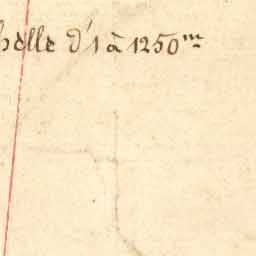 helle d'1 à 1250m